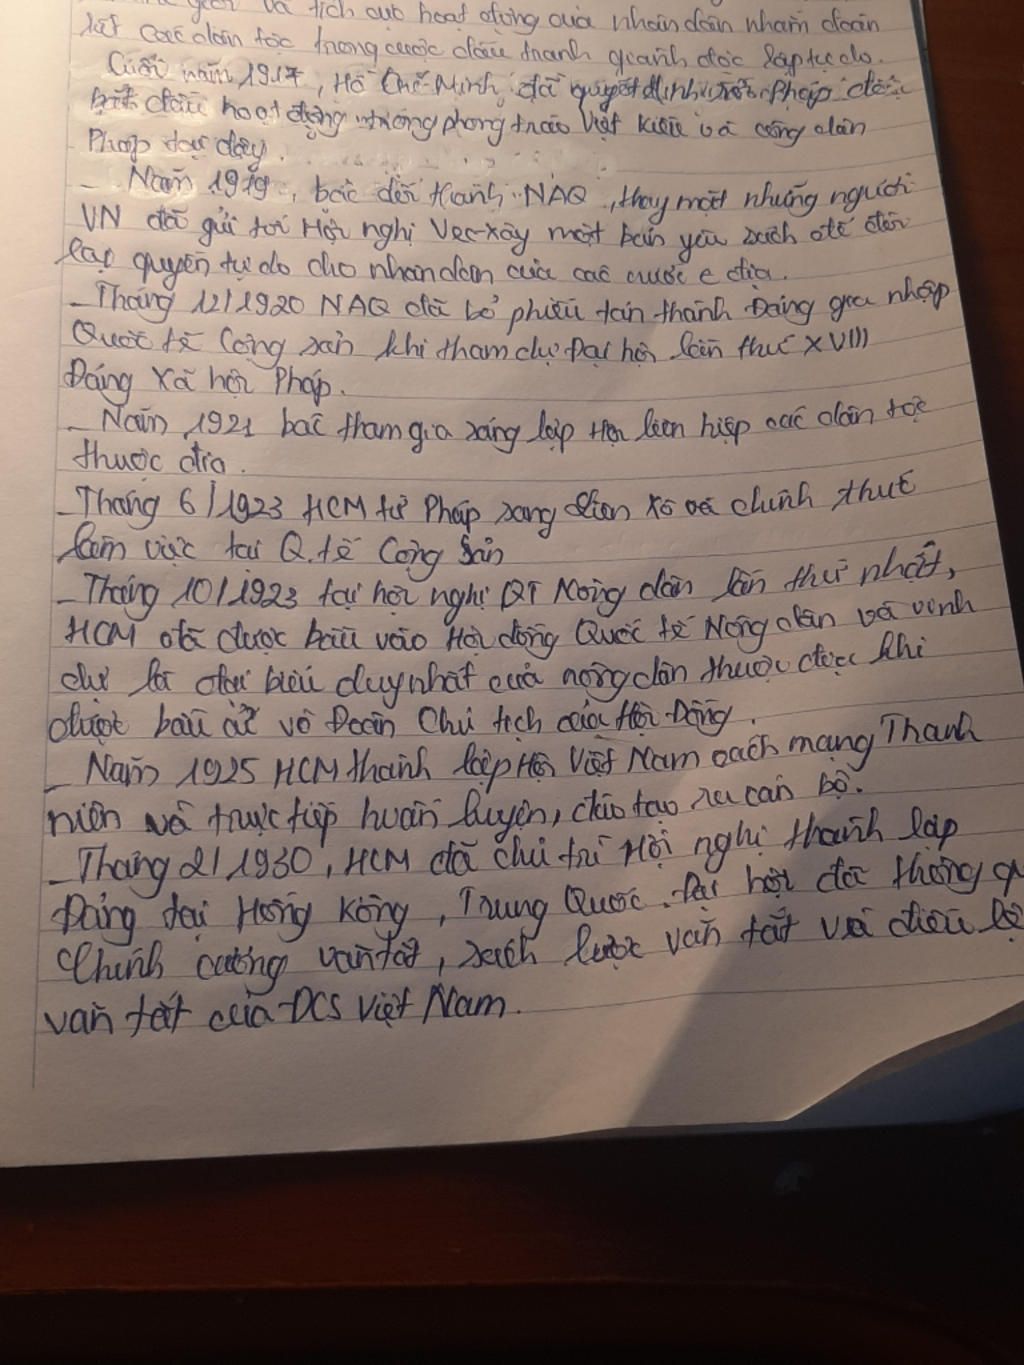 và tích cực hoạt động của nhân dân nhằm đoàn
kết các dân tộc trong cuộc đấu tranh giành độc lập tự do.
Cuối năm 1917, Hồ Chí Minh đã quyết định Pháp để
bắt đầu hoạt động trong phong trào Việt kiều và công dân
Pháp tại đây.
- Năm 1919, bác đổi thành NAQ, thay mặt những người
VN đã gửi tới Hội nghị Vec-xây một bản yêu sách để độc
lập quyền tự do cho nhân dân của các nước
- Tháng 12/1920 NAQ đã bỏ phiếu tán thành Đảng gia nhập
Quốc tế Cộng sản khi tham dự Đại hội lần thứ XVIII
Đảng Xã hội Pháp.
- Năm 1921 bác tham gia sáng lập Hội liên hiệp các dân tộc
thuộc địa.
- Tháng 6/1923 HCM từ Pháp sang Liên Xô và chính thức
làm việc tại Q.tế Cộng Sản
- Tháng 10/1923 tại hội nghị QT Nông dân lần thứ nhất,
HCM đã được bầu vào Hội đồng Quốc tế Nông dân và vinh
dự là đại biểu duy nhất của nông dân thuộc địa khi
được bầu vô Đoàn Chủ tịch của Hội Đồng.
- Năm 1925 HCM thành lập Hội Việt Nam cách mạng Thanh
niên và trực tiếp huấn luyện, đào tạo ra cán bộ.
- Tháng 2/1930, HCM đã chủ trì Hội nghị thành lập
Đảng tại Hồng Kông, Trung Quốc. Đại hội đã thông q
Chính cương vắn tắt, sách lược vắn tắt và điều lệ
vắn tắt của ĐCS Việt Nam.